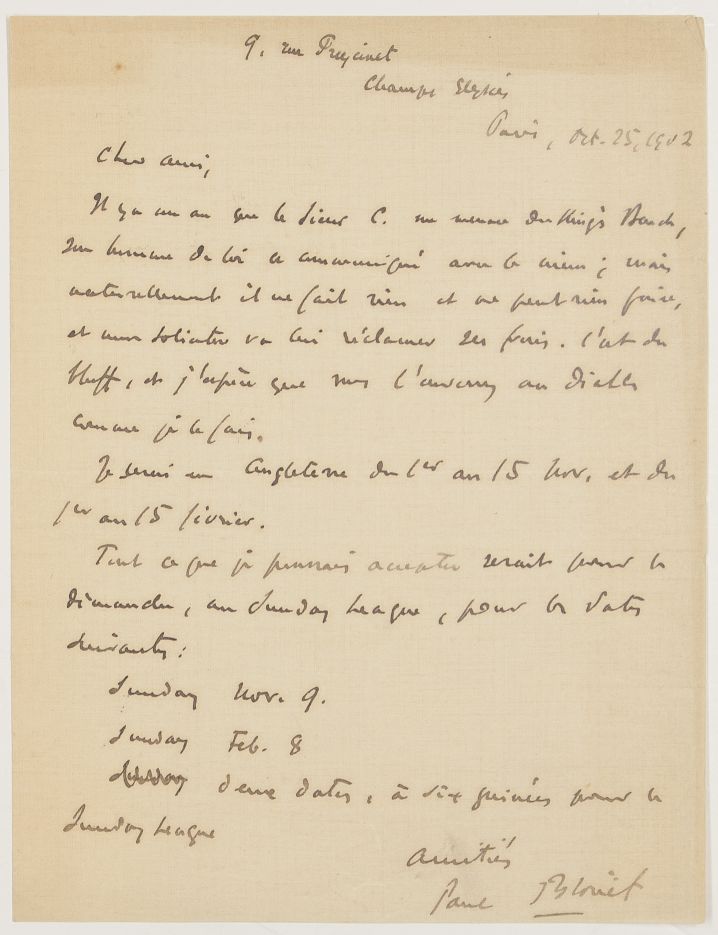 9, rue Freycinet
Champs Elysées
Paris, Oct. 25, 1902
Cher ami,
Il y a un an que le sieur C. me menace du King's Bench,
son homme de loi a communiqué avec le mien ; mais
naturellement il ne fait rien et ne peut rien faire,
et mon solicitor va lui réclamer ses frais. C'est du
bluff, et j'espère que vous l'enverrez au diable
comme je le fais.
Je serai en Angleterre du 1er au 15 Nov. et du
1er au 15 février.
Tout ce que je pourrais accepter serait pour le
dimanche, au Sunday League, pour les dates
suivantes :
Sunday Nov. 9.
Sunday Feb. 8
deux dates, à six guinées pour la
Sunday League
Amitiés
Paul Blouët